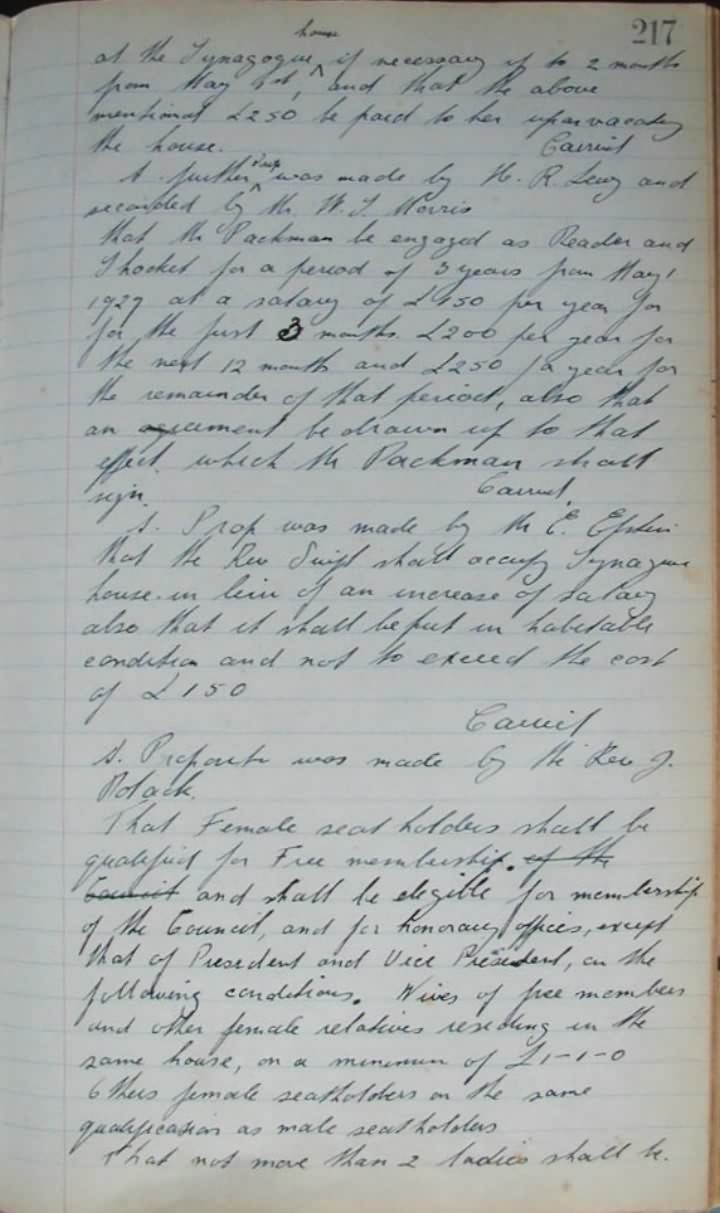 217
house
at the Synagogue ^ if necessary up to 2 months
from May 1st, and that the above
mentioned £250 be paid to her upon vacating
the house. Carried
A further ^ Prop was made by H. R. Levy and
seconded by Mr. W. S. Morris
that Mr Packman be engaged as Reader and
Shochet for a period of 3 years from May 1
1927 at a salary of £150 per year for
for the first 3 months. £200 per year for
the next 12 month and £250 pa year for
the remainder of that period, also that
an agreement be drawn up to that
effect. which Mr Packman shall
sign. Carried.
A. Prop was made by Mr E. Epstein
that the Rev Swift shall occupy Synagogue
house in lieu of an increase of salary
also that it shall be put in habitable
condition and not to exceed the cost
of £150
Carried
A. Proposition was made by the Rev J.
Polack.
That Female seat holders shall be
qualified for Free membership. of the
Council and shall be elegible for membership
of the Council, and for honorary offices, except
that of President and Vice President, on the
following conditions. Wives of free members
and other female relatives reseding in the
same house, on a minimum of £1-1-0
Others female seatholders on the same
qualification as male seatholders
That not more than 2 ladies shall be.